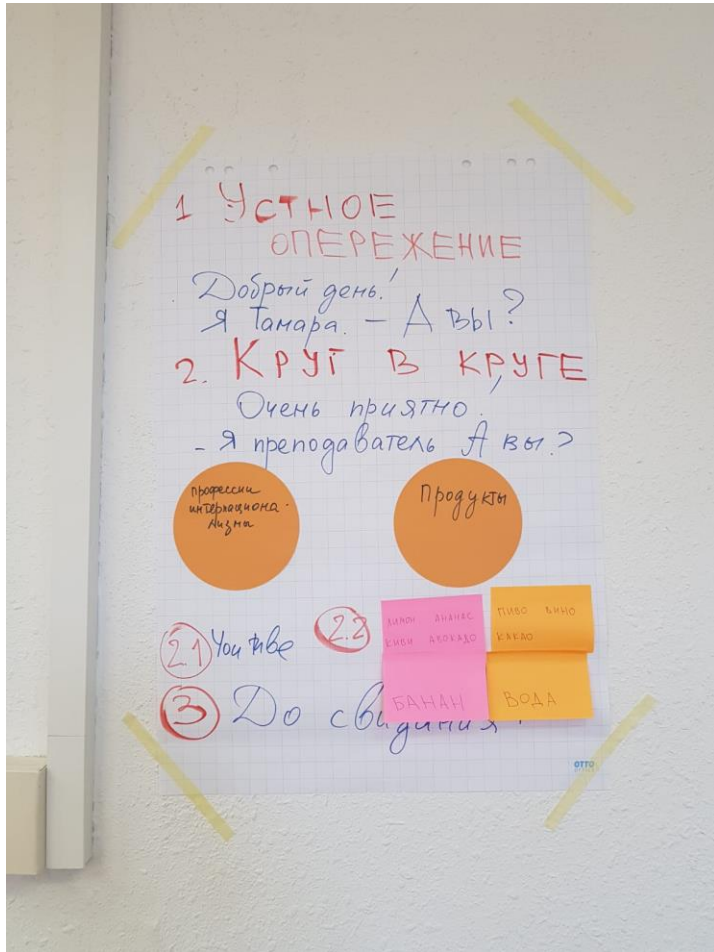 1 УСТНОЕ
ОПЕРЕЖЕНИЕ
Добрый день!
Я Тамара. – А вы?
2. КРУГ В КРУГЕ
Очень приятно!
- Я преподаватель А вы?
профессии
интернациона-
лизмы
Продукты
2.1 YouTube
2.2
ЛИМОН АНАНАС
КИВИ АВОКАДО
БАНАН
ПИВО ВИНО
КАКАО
ВОДА
3 До свидания!
OTTO